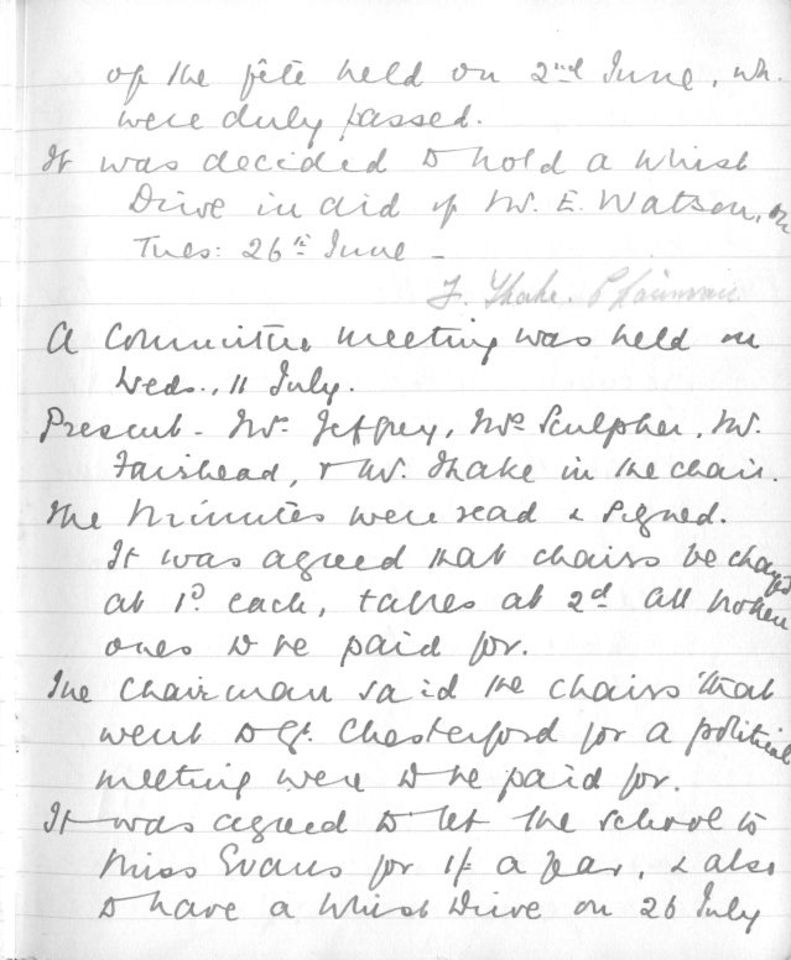 of the fête held on 2nd June, wh.
were duly passed.
It was decided to hold a Whist
Drive in aid of Mr. E. Watson, on
Tues: 26th June -
F. Thake. Chairman
A Committee meeting was held on
Weds., 11 July.
Present - Mr. Jeffrey, Mrs Sculpher, Mr.
Fairhead, & Mr. Thake in the chair.
The Minutes were read & signed.
It was agreed that chairs be charged
at 1d each, tables at 2d all broken
ones to be paid for.
The Chairman said the chairs that
went to Gt. Chesterford for a political
meeting were to be paid for.
It was agreed to let the school to
Miss Evans for 1/- a year, & also
to have a Whist Drive on 26 July